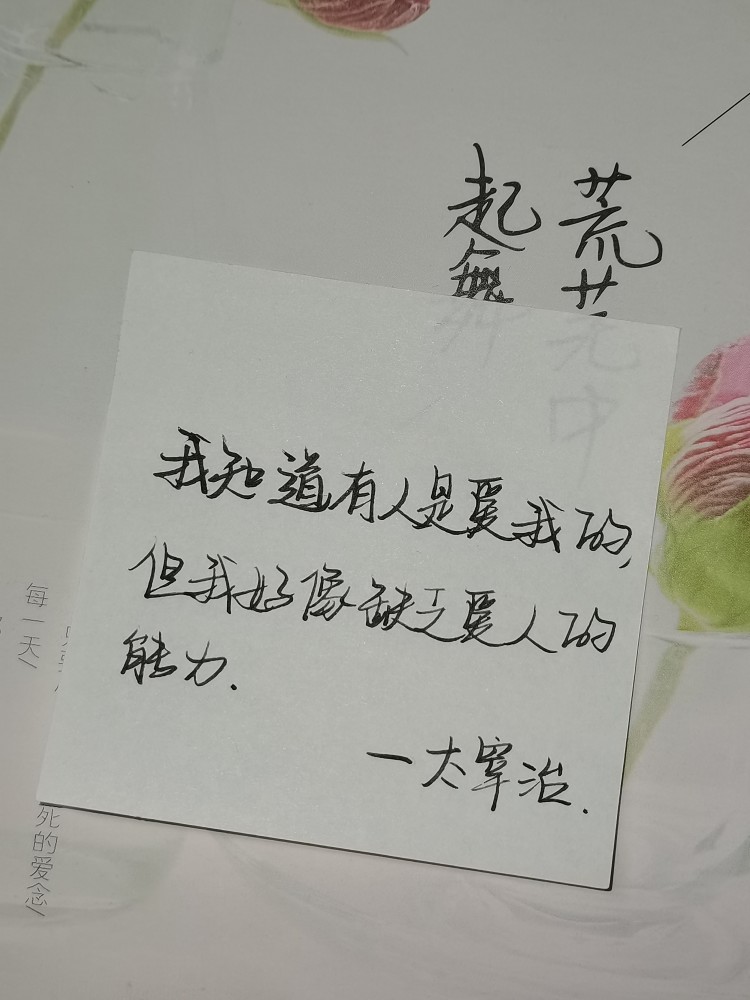 荒芜中
起舞
我知道有人是爱我的,
但我好像缺乏爱人的
能力.
一太宰治.
每一天/
死的爱念/